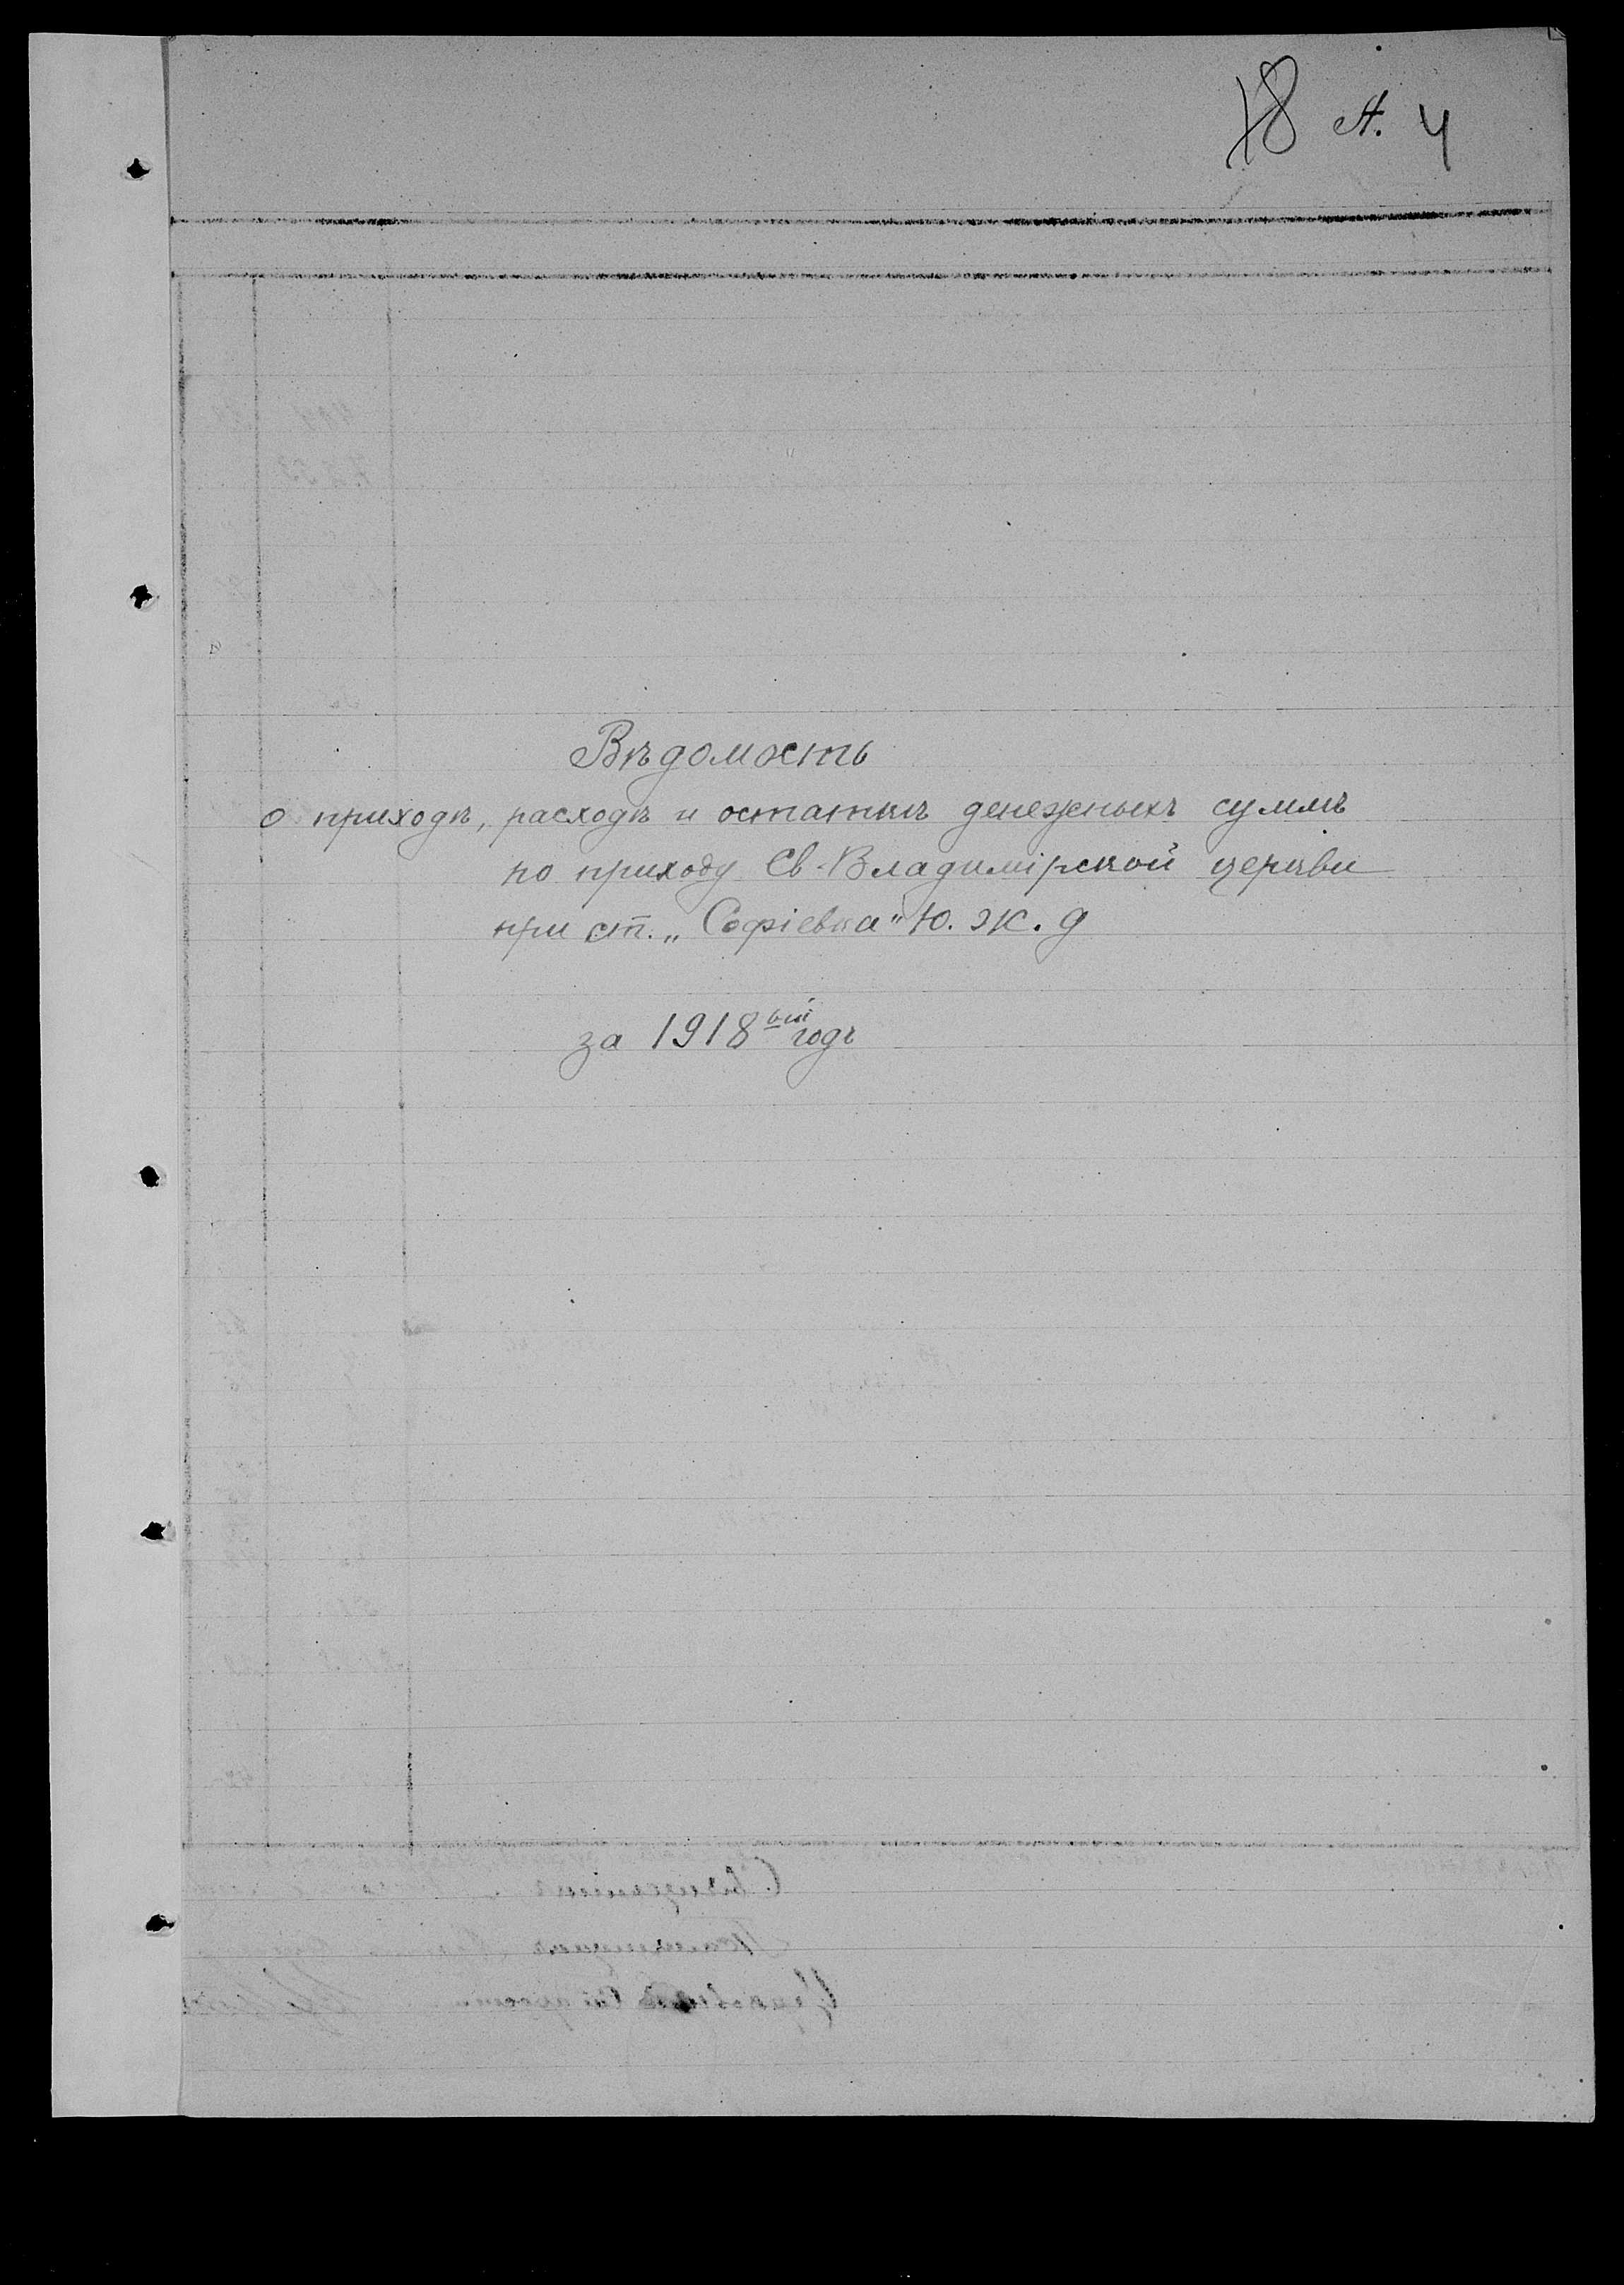 18 А. 4
Вѣдомость
о приходѣ, расходѣ и остаткѣ денежныхъ суммъ
по приходу Св-Владимірской церкви
при ст. „Софіевка" Ю. Ж. Д
за 1918ый годъ